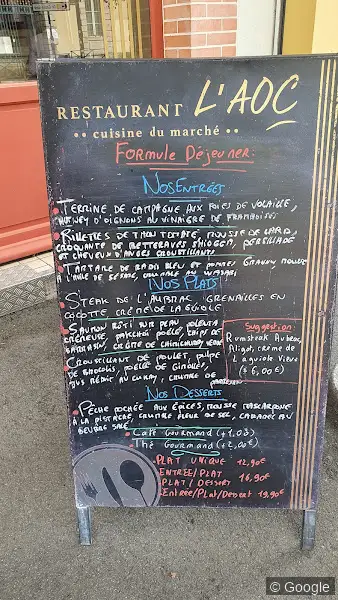 RESTAURANT L'AOC
•• cuisine du marché ••
FORMULE DÉJEUNER:
NOS ENTRÉES
TERRINE DE CAMPAGNE AUX FOIES DE VOLAILLE,
D'OIGNONS AU VINAIGRE DE FRAMBOISES
RILLETTES DE THON TOMATE, MOUSSE DE LARD,
CROQUANTE DE BETTERAVES SHIOGGA, PERSILLADE
ET CHEVEUX D'ANGES CROUSTILLANTS
TARTARE DE RADIS BLEU ET POMMES GRANNY
À L'HUILE DE SÉSAME, AU WASABI
NOS PLATS
STEAK DE L'AUBRAC GRENAILLES EN
COCOTTE CRÈME DE LAGUIOLE
RÔTI SUR PEAU POLENTA
CRÉMEUSE, PAKCHOÏ POÊLÉ, CHIPS DE
DE CHIMICHURRI
CROUSTILLANT DE POULET, PULPE
DE BROCOLIS, POÊLÉE DE GIROLLES,
JUS RÉDUIT AU CURRY, CRUMBLE DE
Suggestion
Rumsteak Aubrac,
Aligot, crème de
Laguiole Vieux
(+ 6,00€)
NOS DESSERTS
PÊCHE POCHÉE AUX ÉPICES, MOUSSE MASCARPONE
À LA PISTACHE, CRUMBLE FLEUR DE SEL,
BEURRE SALÉ
Café Gourmand (+1,03)
Thé Gourmand (+2,00€)
PLAT UNIQUE: 12,90€
ENTRÉE/PLAT
PLAT / DESSERT 16,90€
Entrée/Plat/Dessert 19,90€
© Google